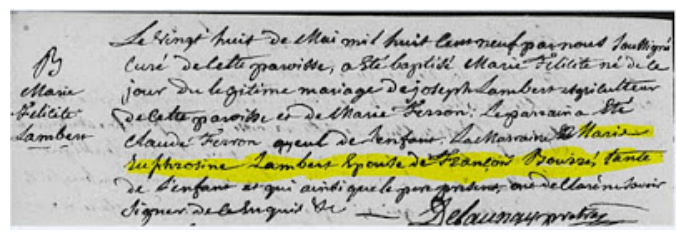 B
Marie
Felicite
Lambert
Le vingt huit de Mai mil huit cent neuf par nous soussigné
curé de cette paroisse, a été baptisé Marie Felicité né de ce
jour du legitime mariage de joseph Lambert agriculteur
de cette paroisse et de Marie Ferron. Le parrain a été
Claude Ferron ayeul de l'enfant. La Marraine Marie
Euphrosine Lambert Epouse de François Bourré, tante
de l'enfant et qui ainsi que le pere present, ont declaré ne savoir
signer de ce enquis &c
Delaunay ptre